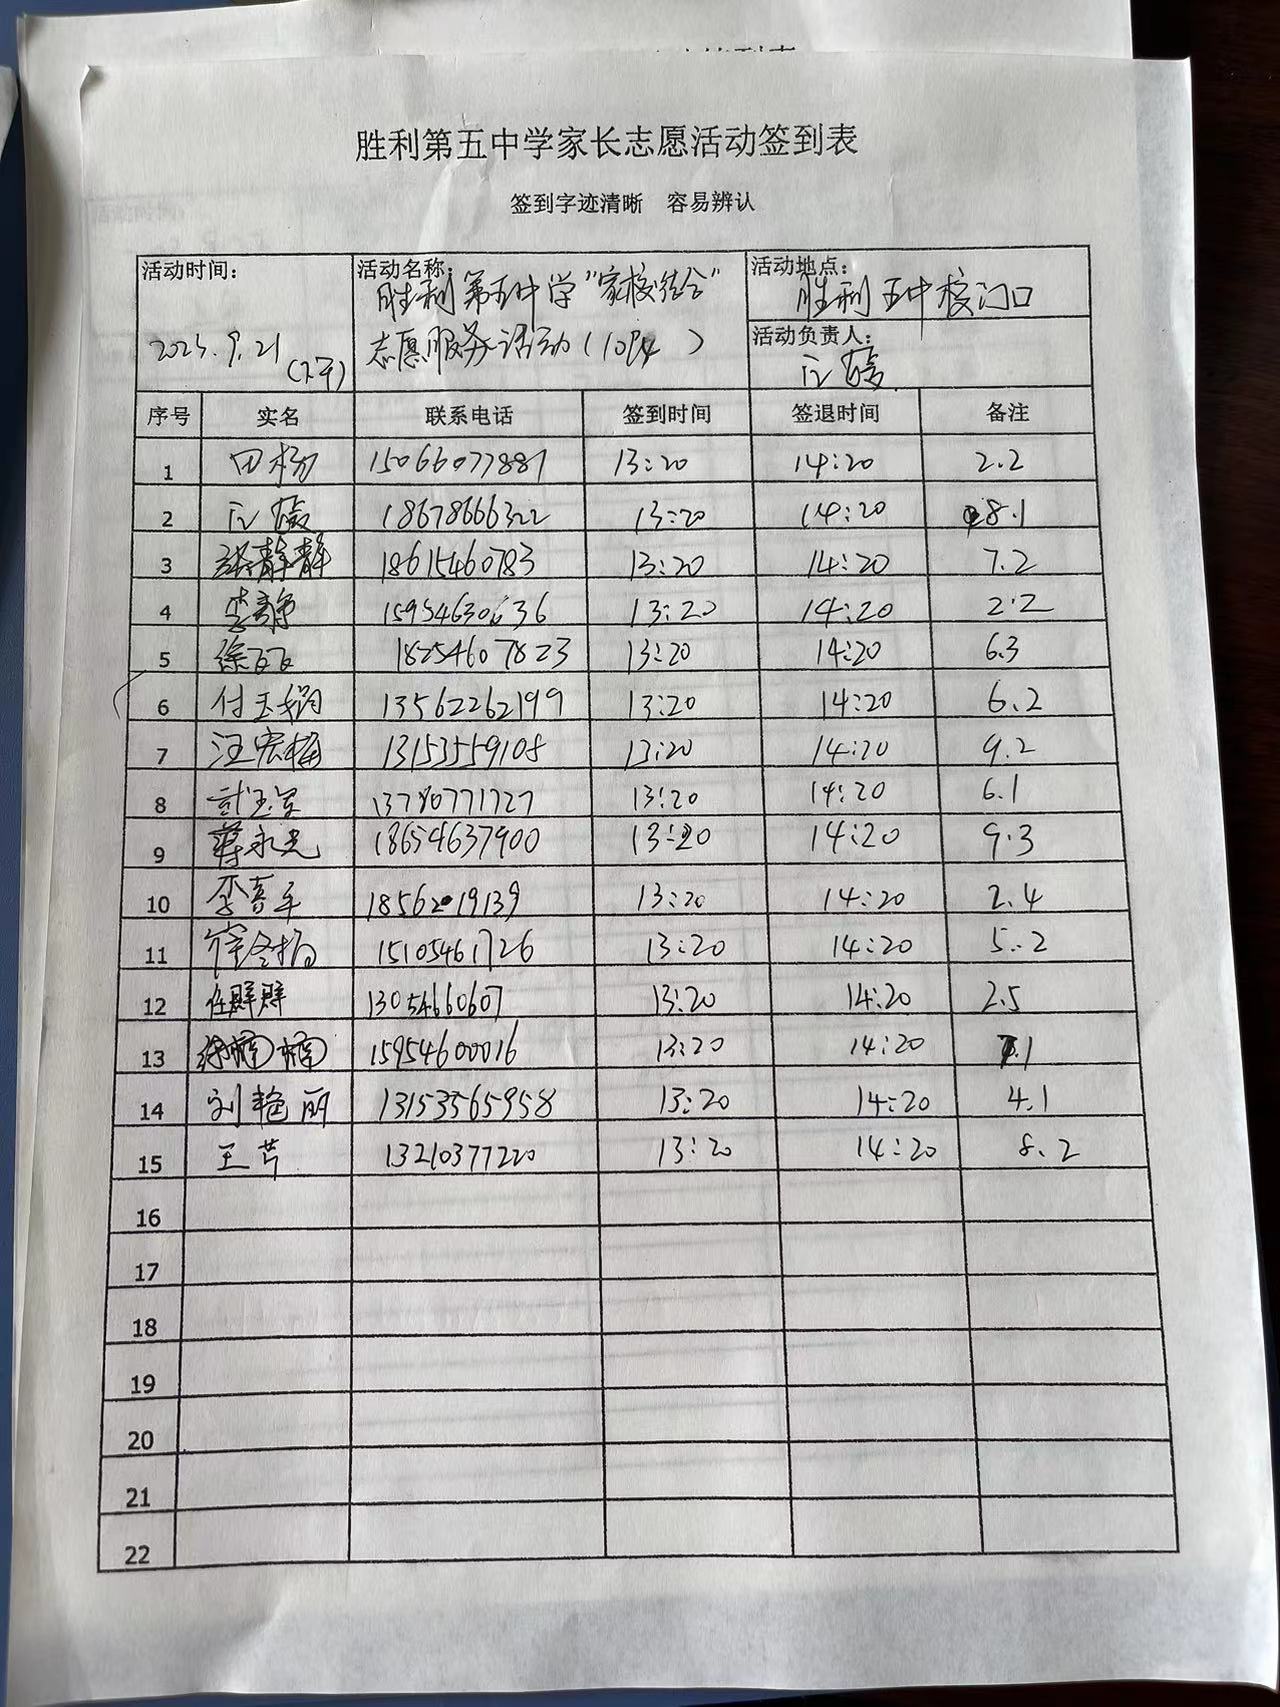 胜利第五中学家长志愿活动签到表
签到字迹清晰 容易辨认
活动时间：
2023.9.21
(下午)
活动名称：
胜利第五中学“家校结合”
志愿服务活动（
）
活动地点：
胜利五中校门口
活动负责人：
序号 实名 联系电话 签到时间 签退时间 备注
1 田杨 15066077881 13:20 14:20 2.2
2 18678666322 13:20 14:20 8.1
3 张静静 18615460783 13:20 14:20 7.2
4 李静 15954630636 13:20 14:20 2.2
5 徐 18254607823 13:20 14:20 6.3
6 付玉娟 13562262199 13:20 14:20 6.2
7 汪宏梅 13153559108 13:20 14:20 9.2
8 13780771727 13:20 14:20 6.1
9 蒋永光 18654637900 13:20 14:20 9.3
10 李喜军 18562019139 13:20 14:20 2.4
11 15105461726 13:20 14:20 5.2
12 任群群 13054660607 13:20 14:20 2.5
13 楠楠 15954600016 13:20 14:20 7.1
14 刘艳丽 13153565958 13:20 14:20 4.1
15 王芹 13210377220 13:20 14:20 8.2
16
17
18
19
20
21
22